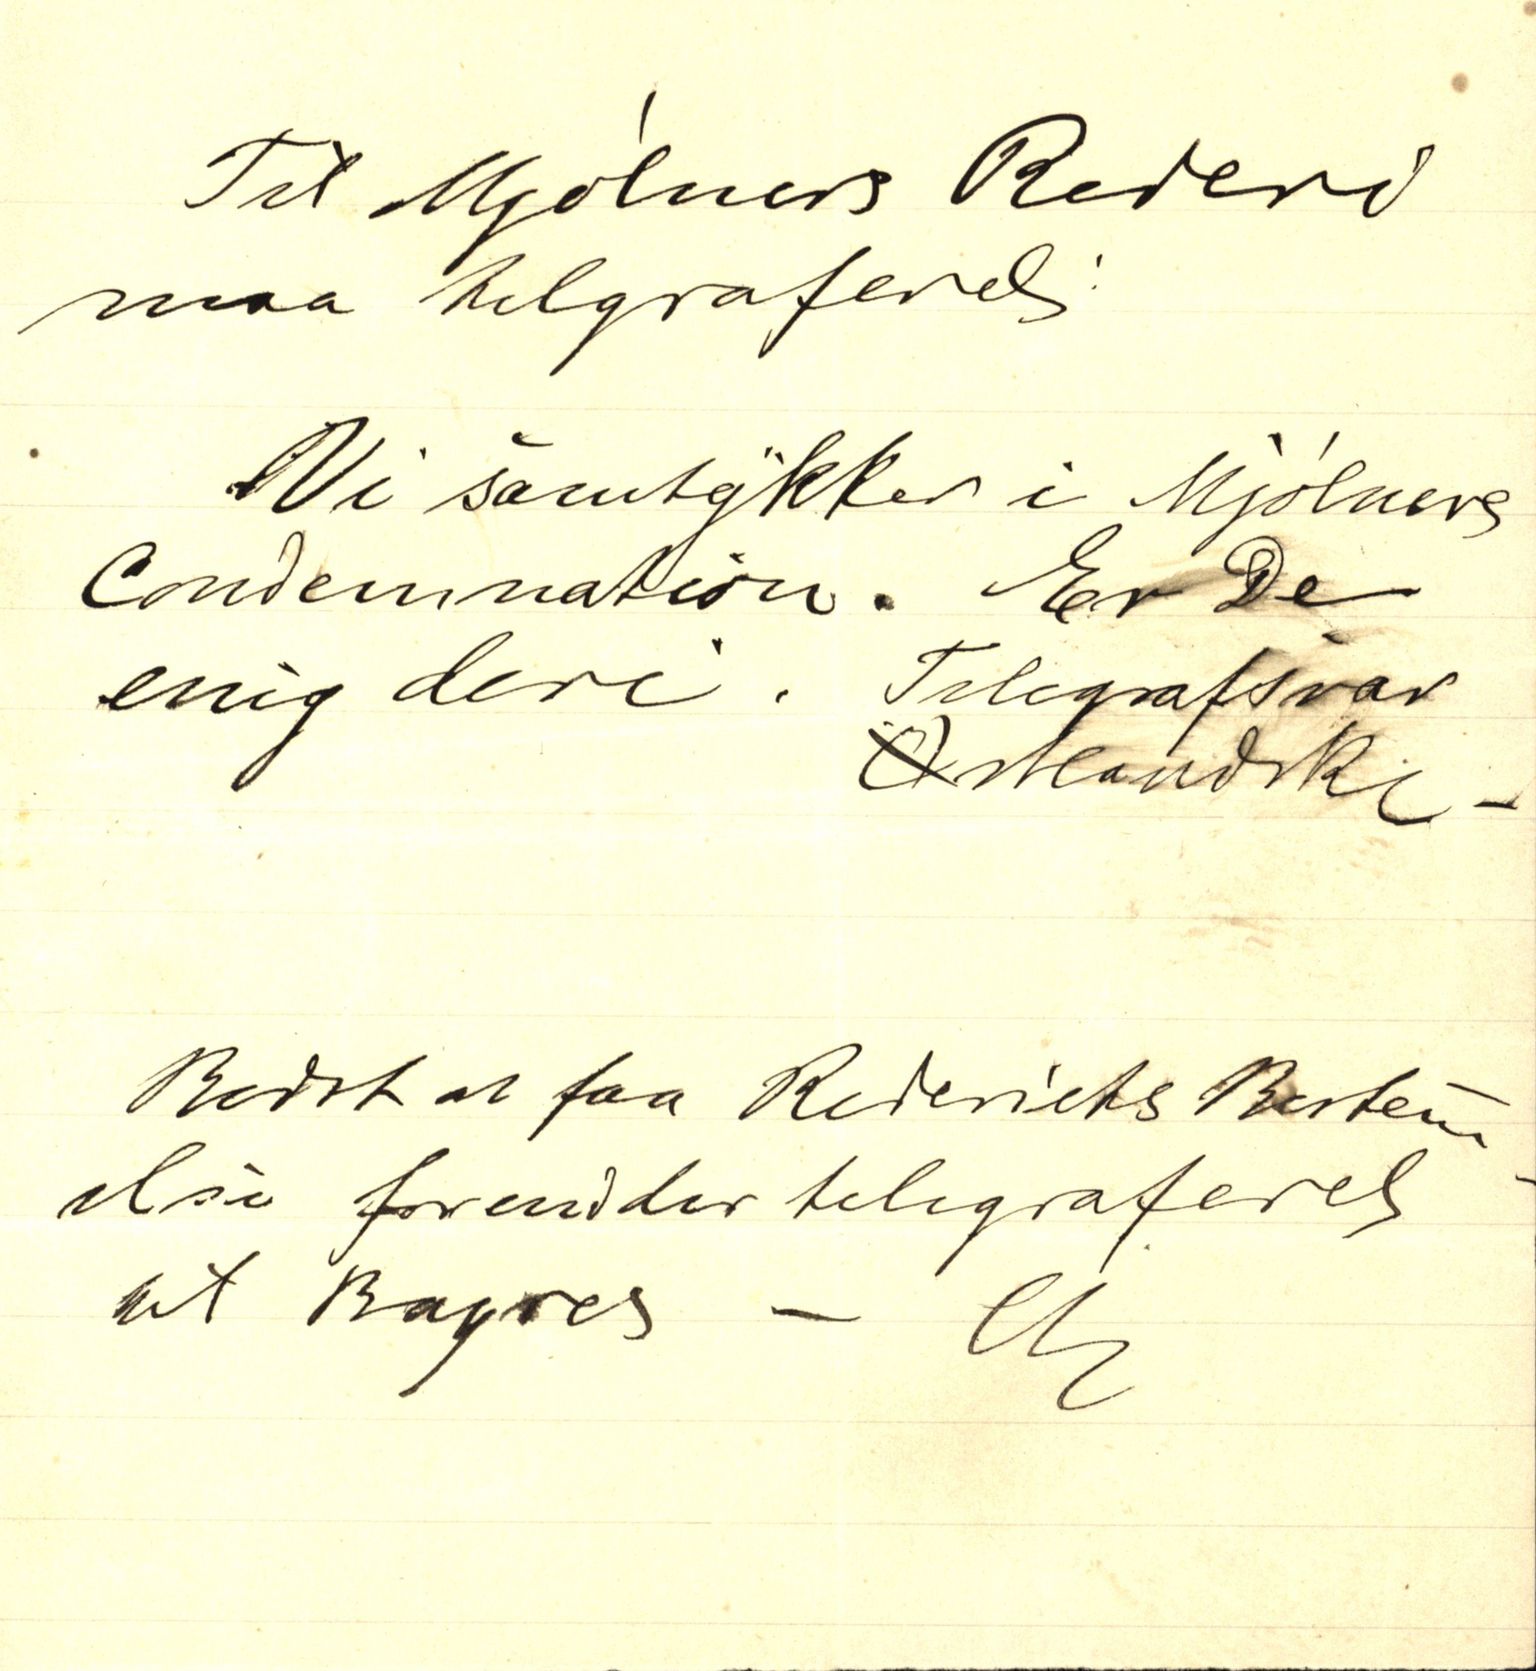 Til Mjólners Rederi
maa telgraferes:
Vi samtykker i Mjólners
Condemnation. Er De
enig deri. Telegrafsvar
Østlandske –
Bedst at faa Rederiets Bestem̅
else forinden telegraferes
til Bayres –